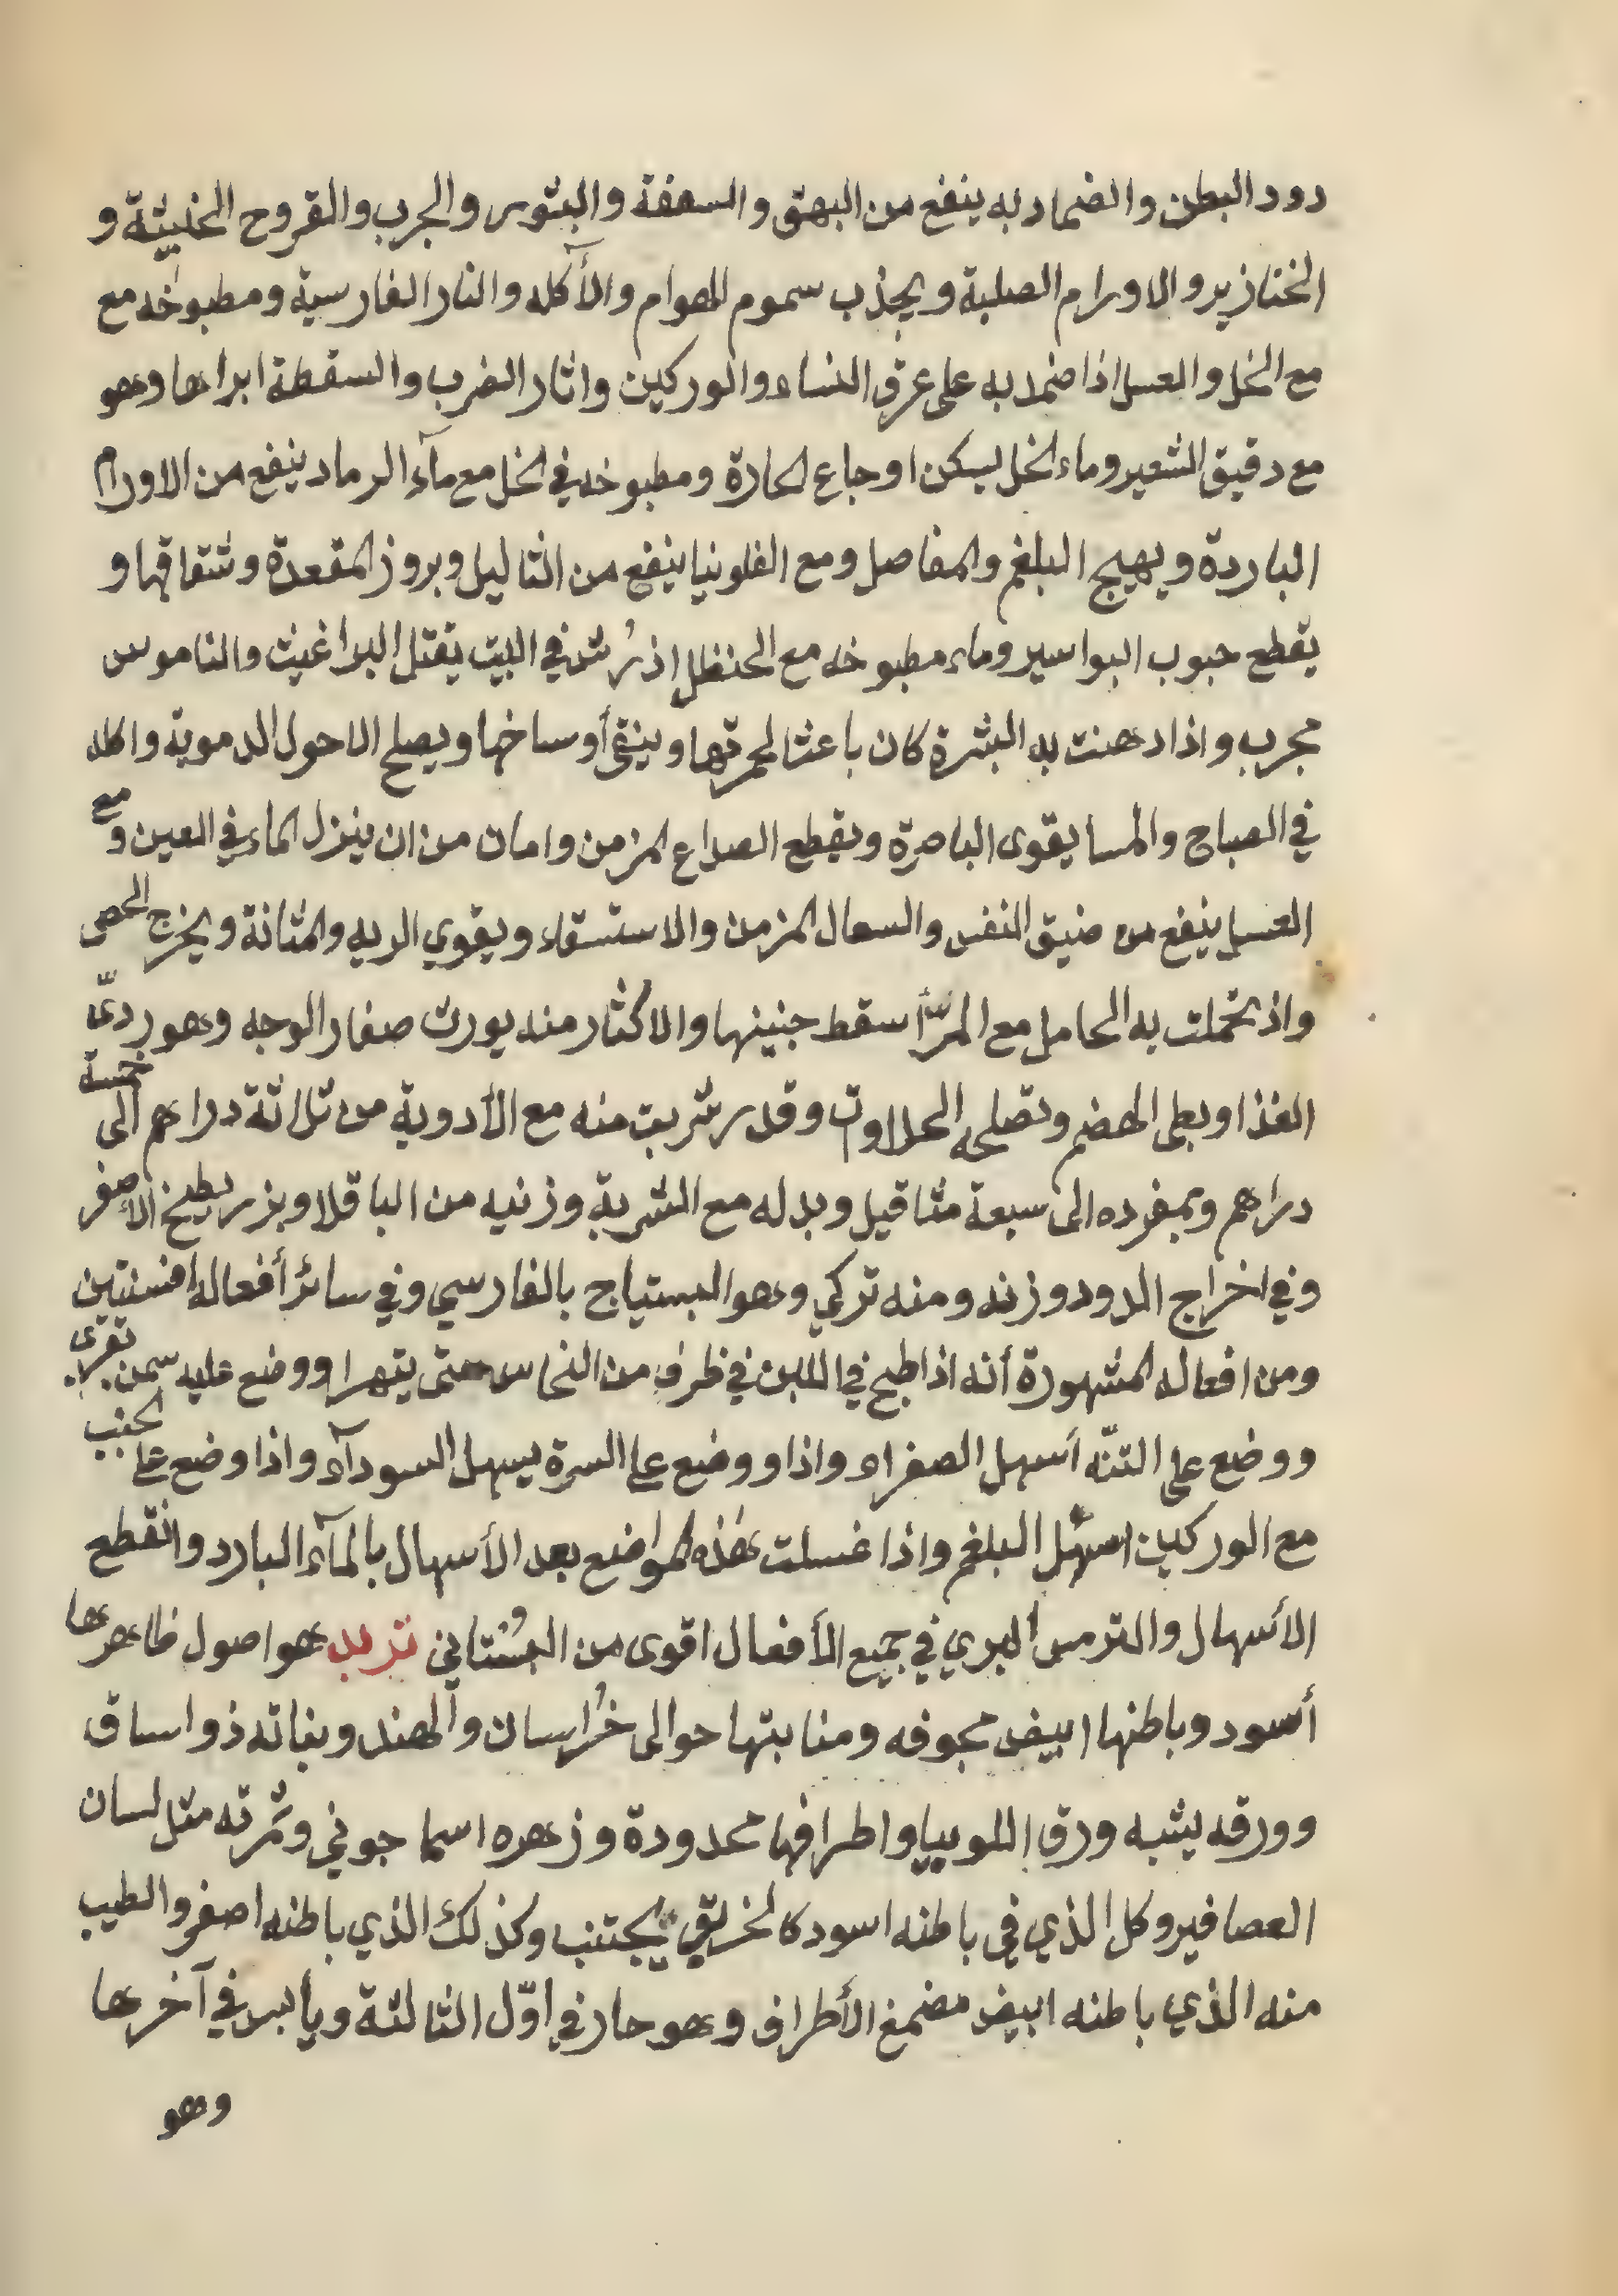 دود البطن والضماد به ينفع من البهق والسعفة والبثور والجرب والقروح الخبيثة و
الخنازير والاورام الصلبة ويجذب سموم الهوام والأكله والنار الفارسية ومطبوخه مع
مع الخل والعسل اذا ضمد به على عرق النساء والوركين واثار الضرب والسقطة ابراها وهو
مع دقيق الشعير وماء الخل يسكن اوجاع الحارة ومطبوخه في الخل مع مآء الرماد ينفع من الاورام
الباردة ويهيج البلغم والمفاصل ومع الفلونيا ينفع من الثاليل وبروز المقعدة وشقاقها و
يقطع حبوب البواسير وماء مطبوخه مع الحنظل اذ رُش في البيت يقتل البراغيث والناموس
مجرب واذا دهنت به البشرة كان باعثا لحمرتها وينقى أوساخها ويصلح الاحول الدموية واكله
في الصباح والمسا يقوى الباصرة ويقطع الصداع المزمن وامان من ان ينزل الماء في العين و مع
العسل ينفع من ضيق النفس والسعال المزمن والاستسقاء ويقوي الريه والمثانة ويخرج الحصى
واذ تحملت به الحامل مع المرّ أسقط جنينها والاكثار منه يورث صفار الوجه وهو ردىّ
الغذا وبطى الهضم وتصلحه الحلاوات وقد شربت منه مع الأدوية من ثلاثة دراهم الى خمسة
دراهم وبمفرده الى سبعة مثاقيل وبدله مع الشربة وزنيه من الباقلا وبزر بطيخ الاصفر
وفي اخراج الدود وزنه ومنه تركي وهو البستياج بالفارسي وفي سائر أفعاله افسنتين
ومن افعاله المشهورة أنه اذا طبخ في اللبن في ظرف من النحاس حتى يتهرا ووضع عليه سمن بقرى
ووضع على التنّه أسهل الصفراء واذا ووضع على السرة يسهل السودآء واذا وضع على الجنب
مع الوركين اسهل البلغم واذا غسلت هذه المواضع بعد الأسهال بالمآء البارد وانقطع
الأسهال والترمس البري في جميع الأفعال اقوى من البُستاني تربد هو اصول ظاهرها
أسود وباطنها ابيض مجوفه ومنابتها حوالى خُراسان والهند وبناته ذو اساق
وورقه يشبه ورق اللوبيا واطرافها محدودة وزهره اسماجوني وثمرته مثل لسان
العصافير وكل الذي في باطنه اسود كالخربق يجتنب وكذلك الذي باطنه اصفر والطيب
منه الذي باطنه ابيض مضمغ الأطراف وهو حار في اوّل الثالثة ويابس في آخرها
وهو